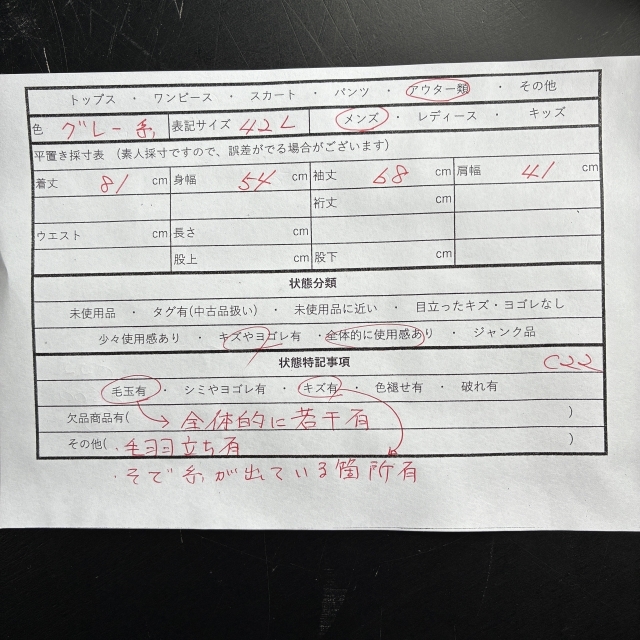 トップス ・ ワンピース ・ スカート ・ パンツ ・ アウター類 ・ その他
色 グレー系 表記サイズ 42L メンズ ・ レディース ・ キッズ
平置き採寸表 （素人採寸ですので、誤差がでる場合がございます）
着丈 81 cm 身幅 54 cm 袖丈 68 cm 肩幅 41 cm
裄丈
ウエスト cm 長さ cm
股上 cm 股下 cm
状態分類
未使用品 ・ タグ有(中古品扱い) ・ 未使用品に近い ・ 目立ったキズ・ヨゴレなし
少々使用感あり ・ キズやヨゴレ有 ・ 全体的に使用感あり ・ ジャンク品
状態特記事項 C22
毛玉有 ・ シミやヨゴレ有 ・ キズ有 ・ 色褪せ有 ・ 破れ有
欠品商品有( → 全体的に若干有 )
その他( ・毛羽立ち有 )
・そで糸が出ている箇所有